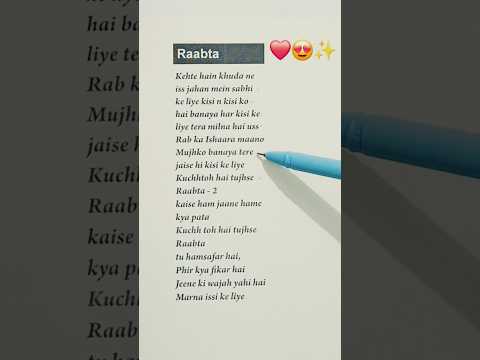 Raabta
Kehte hain khuda ne
iss jahan mein sabhi
ke liye kisi n kisi ko
hai banaya har kisi ke
liye tera milna hai uss
Rab ka Ishaara maano
Mujhko banaya tere
jaise hi kisi ke liye
Kuchhtoh hai tujhse
Raabta - 2
kaise ham jaane hame
kya pata
Kuchh toh hai tujhse
Raabta
tu hamsafar hai,
Phir kya fikar hai
Jeene ki wajah yahi hai
Marna issi ke liye